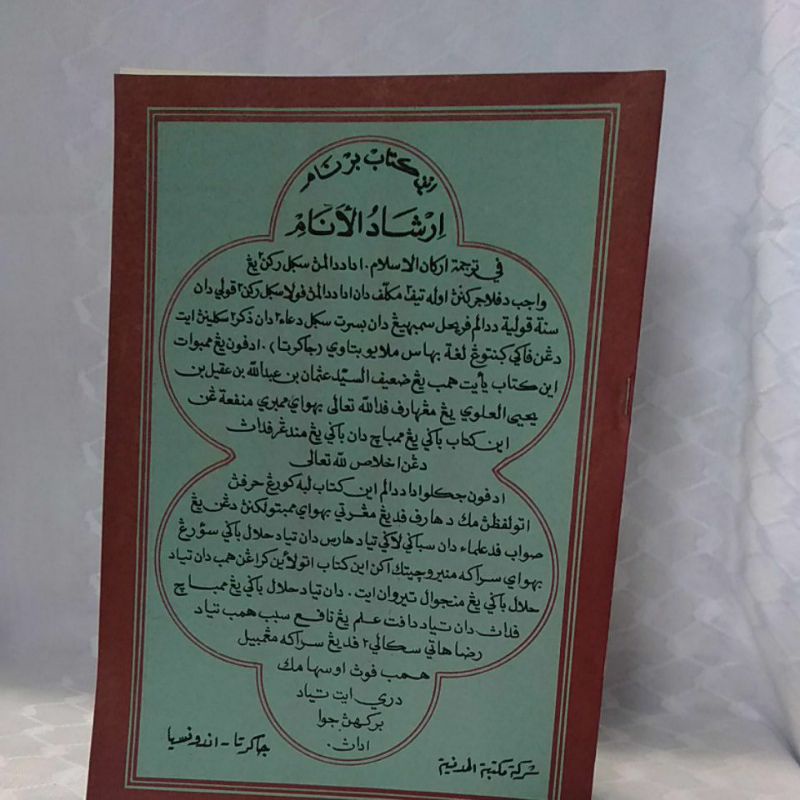 اين كتاب برنام
اِرْشَادُ الْأَنَامْ
في ترجمة اركان الاسلام. اد ددالمڽ سكل ركن٢ يڠ
واجب دفلاجركنڽ اوله تيف٢ مكلّف دان اد ددالمڽ فولا سكل ركن٢ قولي دان
سنة قولية ددالم فريحل سمبهيڠ دان بسرت سكل دعاء٢ دان ذكر٢ سكلينڽ ايت
دڠن فاكي كبنتوڠ لغة بهاس ملايو بتاوي (جاكرتا). ادفون يڠ ممبوات
اين كتاب يأيت همب يڠ ضعيف السيّد عثمان بن عبدالله بن عقيل بن
يحيى العلوي يڠ مڠهارف فدالله تعالى بهواي ممبري منفعة دڠن
اين كتاب باڬي يڠ ممباچ دان باڬي يڠ مندڠر فداڽ
دڠن اخلاص لله تعالى
ادفون جكلو اد ددالم اين كتاب لبه كورڠ حرفڽ
اتو لفظڽ مك دهارف فد يڠ مڠرتي بهواي ممبتولكنڽ دڠن يڠ
صواب فد علماء دان سباڬي لاڬي تياد هارس دان تياد حلال باڬي سؤرڠ
بهواي سراكه منيرو چيتك اكن اين كتاب اتولأين كراڠن همب دان تياد
حلال باڬي يڠ منجوال تيروان ايت. دان تياد حلال باڬي يڠ ممباچ
فداڽ دان تياد دافت علم يڠ نافع سبب همب تياد
رضا هاتي سكالي٢ فد يڠ سراكه مڠمبيل
همب فوڽ اوسها مك
دري ايت تياد
بركهڽ جوا
اداڽ.
جاكرتا - اندونيسيا
شركة مكتبة المدنية